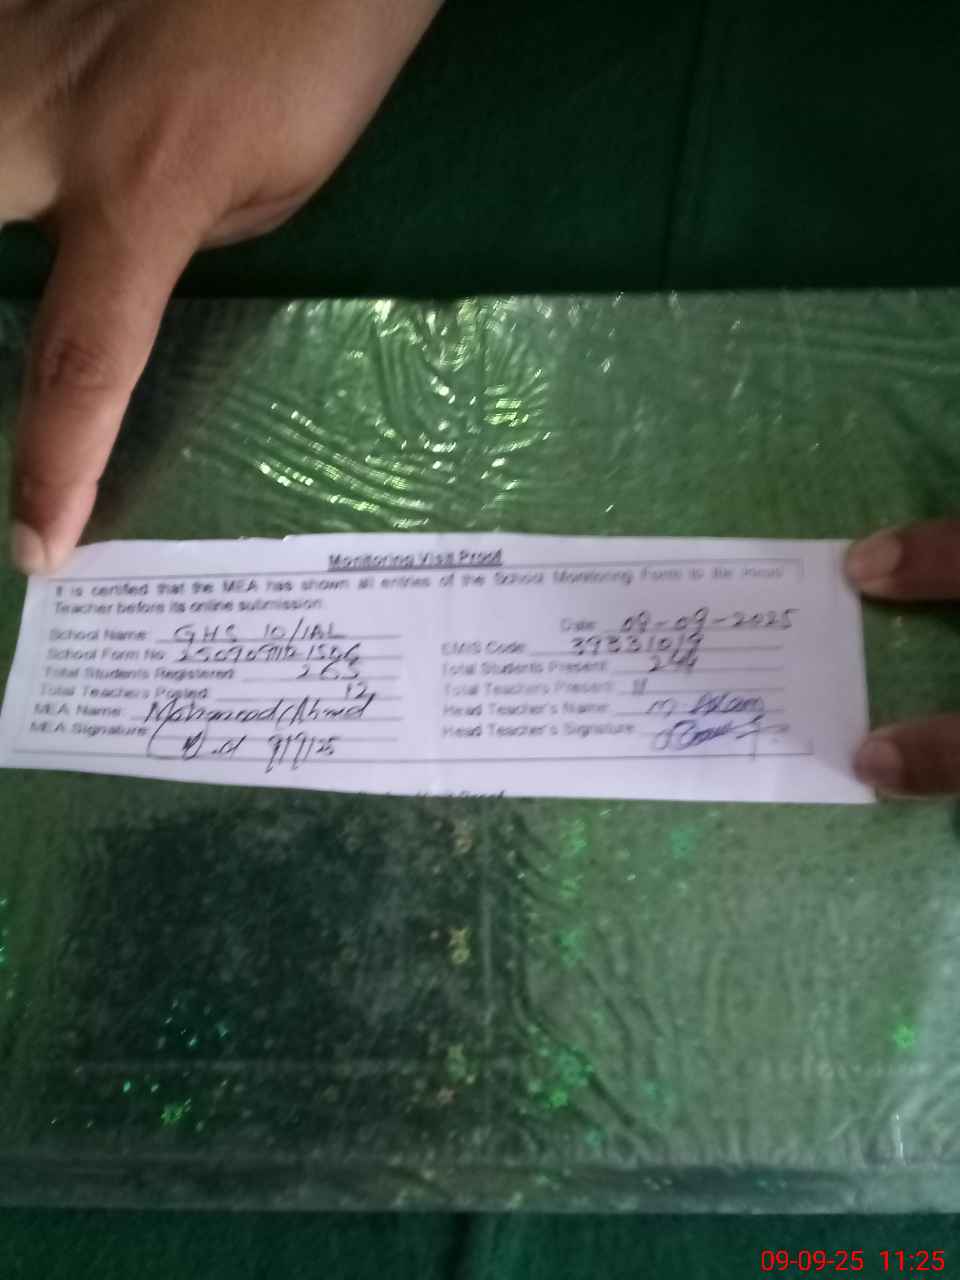 Monitoring Visit Proof
It is certified that the MEA has shown all entries of the School Monitoring Form to the
Teacher before its online submission.
Date 09-09-2025
School Name: GHS 10/1AL
EMIS Code 39331019
School Form No
Total Students Registered 263
Total Students Present 244
Total Teachers Posted 12
Total Teachers Present 11
MEA Name: Ahmad
Head Teacher's Name: M. Aslam
MEA Signature: 9/9/25
Head Teacher's Signature
Visit Proof
09-09-25 11:25